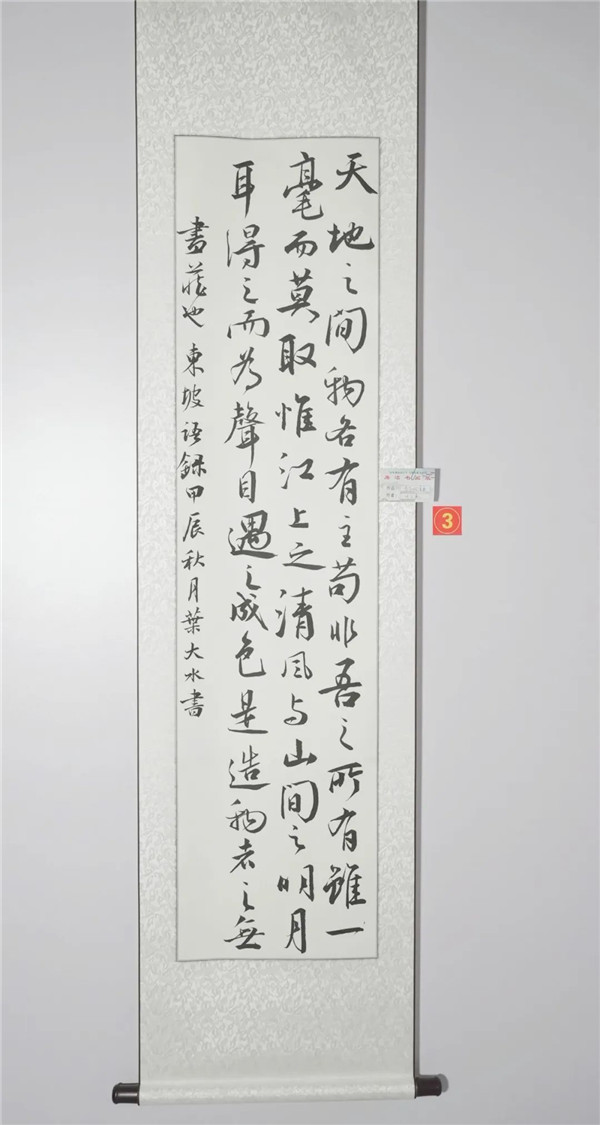 天地之間物各有主苟非吾之所有雖一
毫而莫取惟江上之清風与山間之明月
耳得之而為聲目遇之成色是造物者之無
盡藏也 東坡語録甲辰秋月葉大水書
3